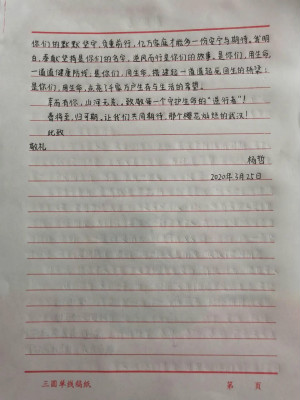 你们的默默坚守,负重前行,亿万家庭才能多一份安宁与期待。
白,奉献坚持是你们的名字,逆风而行是你们的故事。是你们,用生命
一道道健康防线;是你们,用生命,搭建起一道道起死回生的桥梁;
是们,用生命,点亮了千家万户生存与生活的希望。
幸而有你,山河无恙。致敬每一个守护生命的“逆行者”!
春将至,归可期。让我们共同期待,那个樱花灿烂的武汉!
此致
敬礼
杨哲
2020年3月25日
三圆单线稿纸
第 页